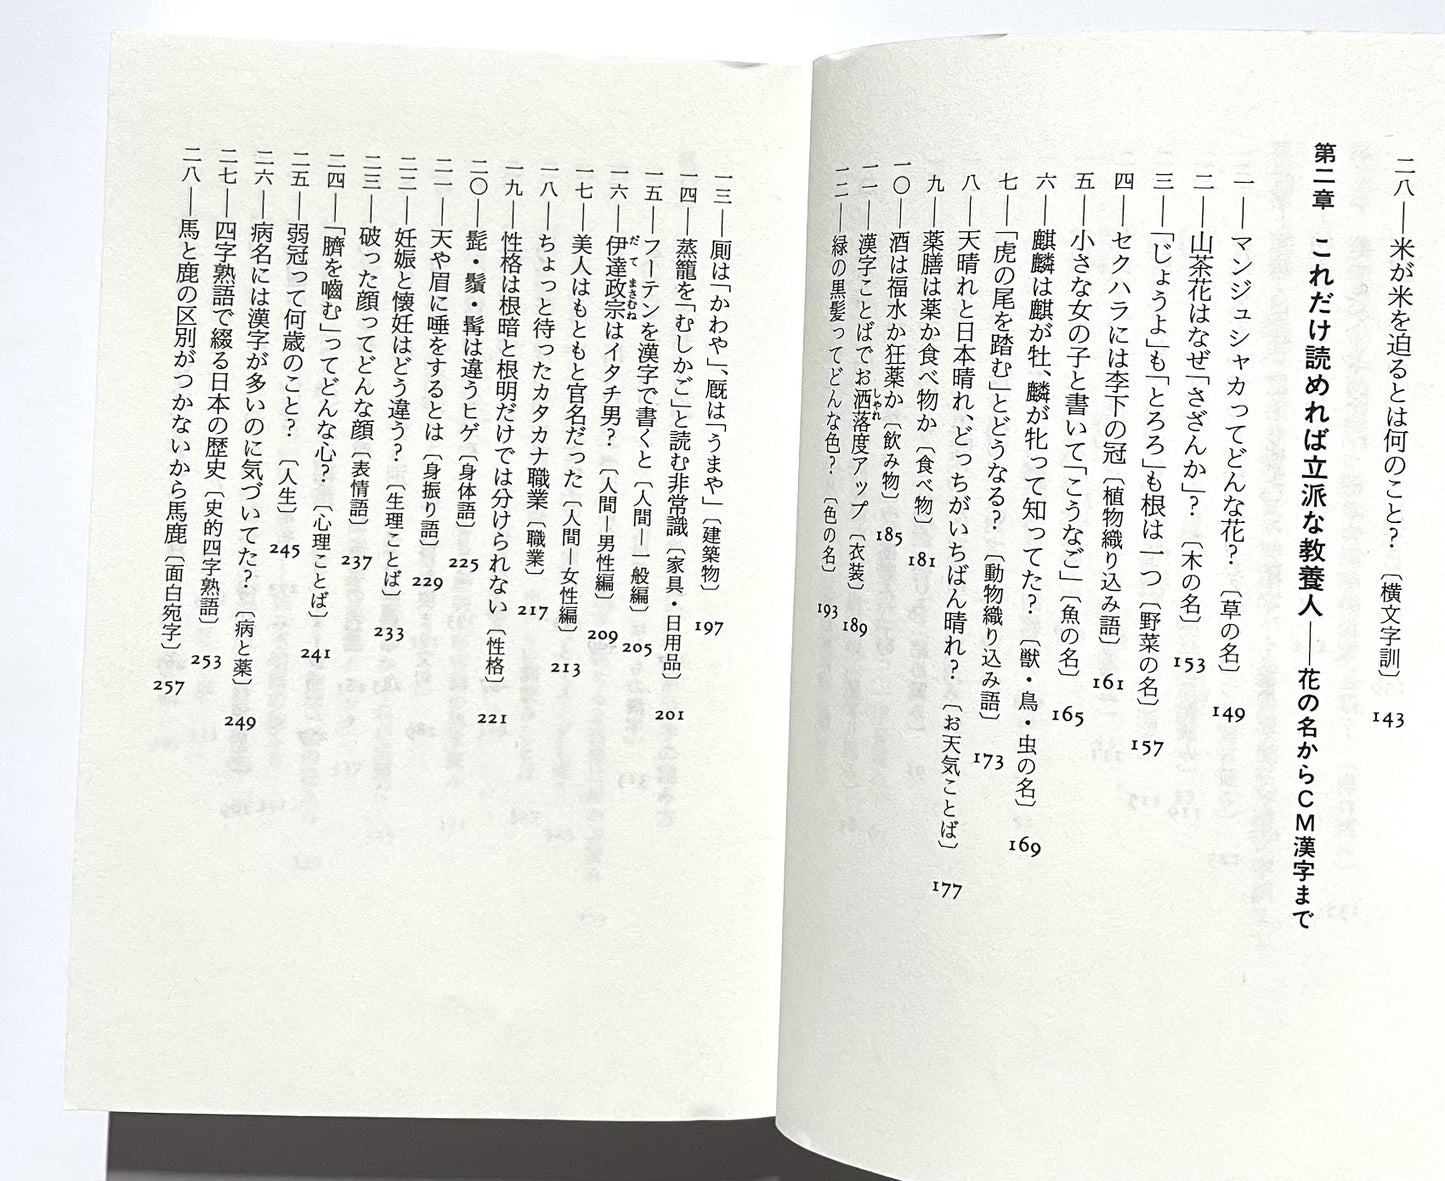 二八――米が米を迫るとは何のこと？〔横文字訓〕143
第二章　これだけ読めれば立派な教養人――花の名からCM漢字まで
一――マンジュシャカってどんな花？〔草の名〕149
二――山茶花はなぜ「さざんか」？〔木の名〕153
三――「じょうよ」も「とろろ」も根は一つ〔野菜の名〕157
四――セクハラには李下の冠〔植物織り込み語〕161
五――小さな女の子と書いて「こうなご」〔魚の名〕165
六――麒麟は麒が牡、麟が牝って知ってた？〔獣・鳥・虫の名〕169
七――「虎の尾を踏む」とどうなる？〔動物織り込み語〕173
八――天晴れと日本晴れ、どっちがいちばん晴れ？〔お天気ことば〕177
九――薬膳は薬か食べ物か〔食べ物〕181
一〇――酒は福水か狂薬か〔飲み物〕185
一一――漢字ことばでお洒落度アップ〔衣装〕189
しゃれ
一二――緑の黒髪ってどんな色？〔色の名〕193
一三――厠は「かわや」、厩は「うまや」〔建築物〕197
一四――蒸籠を「むしかご」と読む非常識〔家具・日用品〕201
一五――フーテンを漢字で書くと〔人間―一般編〕205
一六――伊達政宗はイタチ男？〔人間―男性編〕209
だてまさむね
一七――美人はもともと官名だった〔人間―女性編〕213
一八――ちょっと待ったカタカナ職業〔職業〕217
一九――性格は根暗と根明だけでは分けられない〔性格〕221
二〇――髭・鬚・髯は違うヒゲ〔身体語〕225
二一――天や眉に唾をするとは〔身振り語〕229
二二――妊娠と懐妊はどう違う？〔生理ことば〕233
二三――破った顔ってどんな顔〔表情語〕237
二四――「臍を嚙む」ってどんな心？〔心理ことば〕241
二五――弱冠って何歳のこと？〔人生〕245
二六――病名には漢字が多いのに気づいてた？〔病と薬〕249
二七――四字熟語で綴る日本の歴史〔史的四字熟語〕253
二八――馬と鹿の区別がつかないから馬鹿〔面白宛字〕257